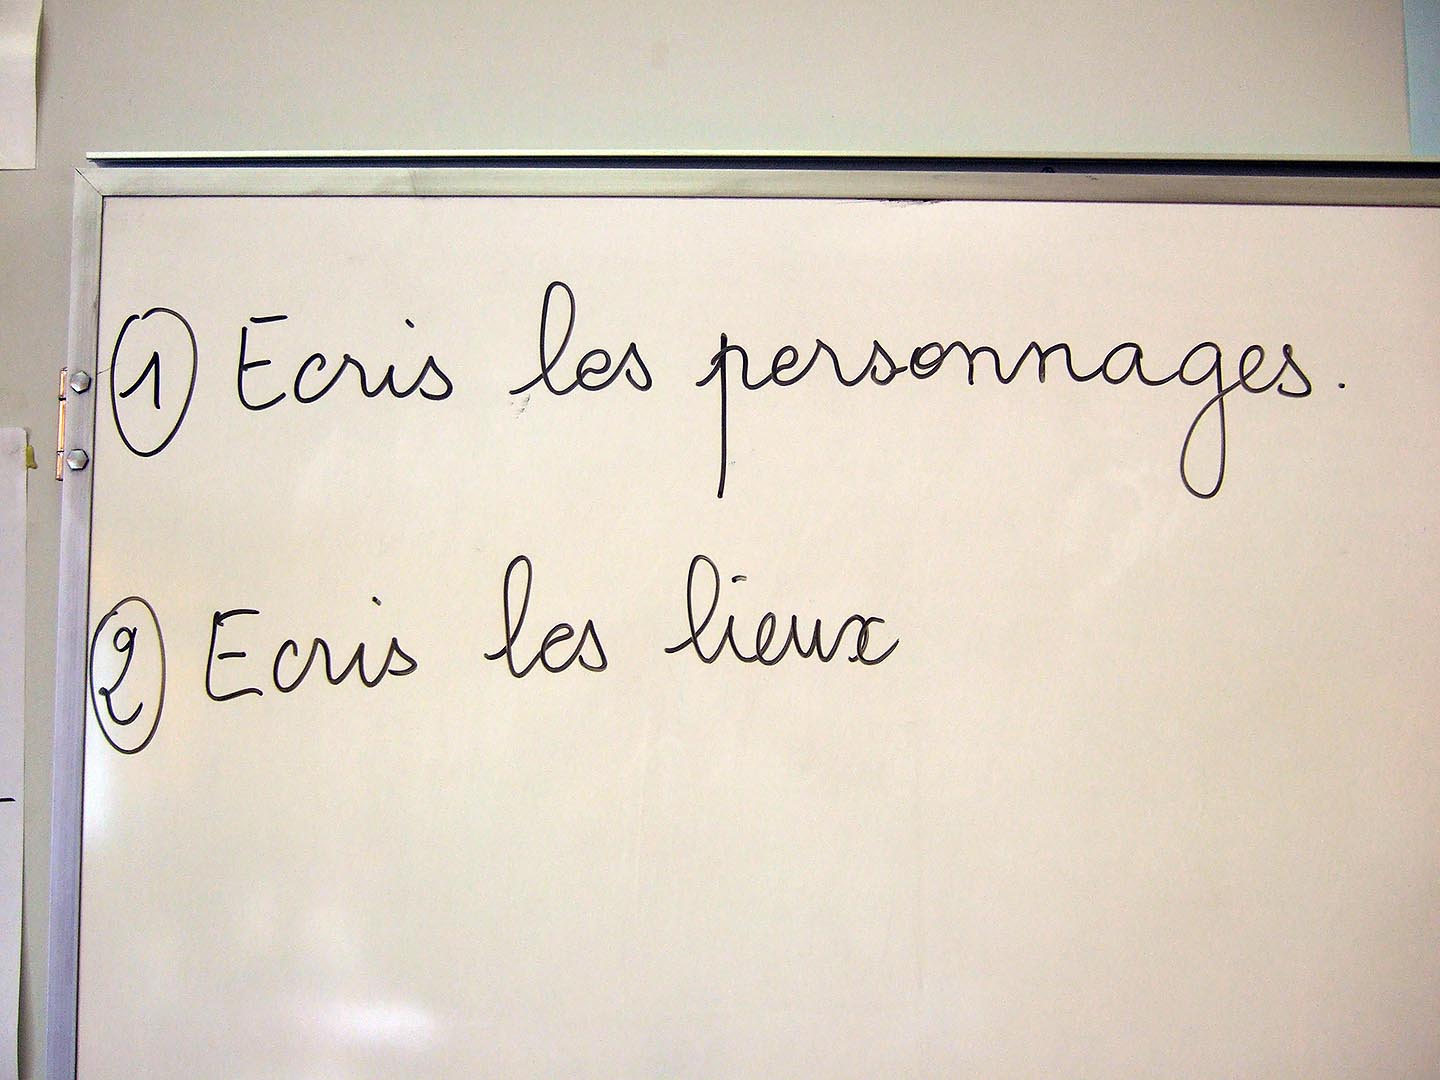 ① Ecris les personnages.
② Ecris les lieux